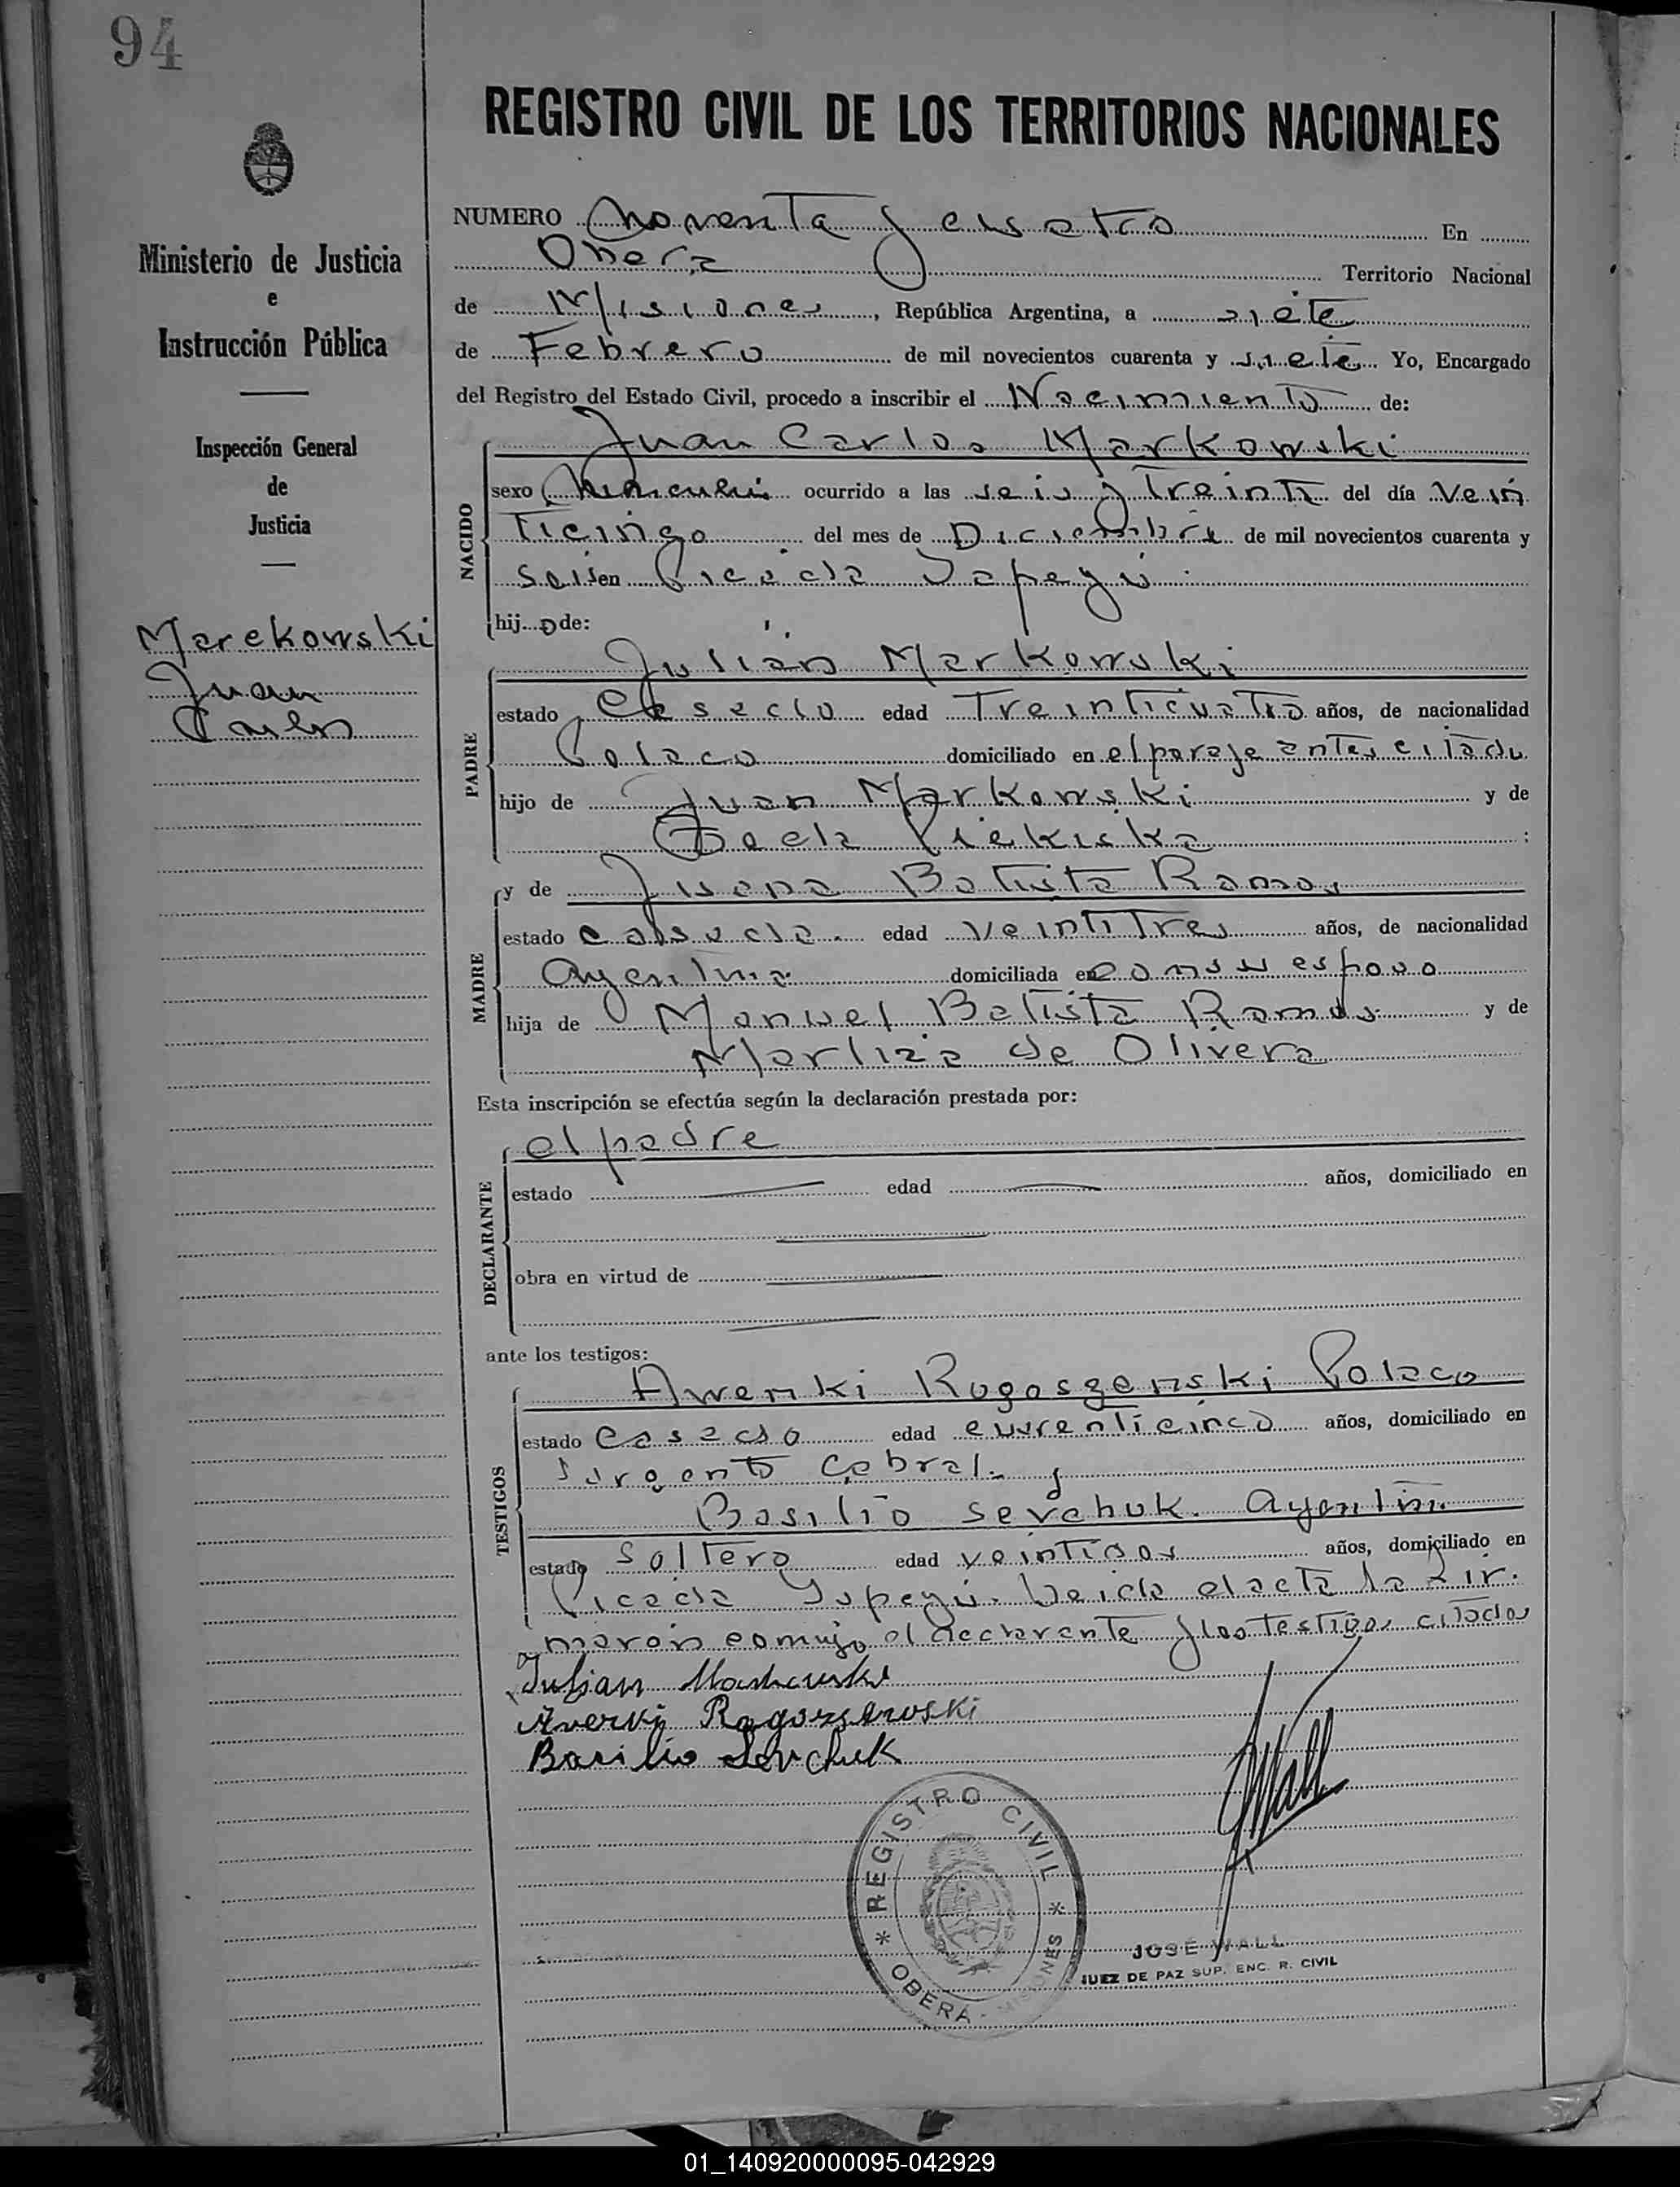 94
REGISTRO CIVIL DE LOS TERRITORIOS NACIONALES
Ministerio de Justicia
e
Instrucción Pública
Inspección General
de
Justicia
Marekowski
Juan
Carlos
NUMERO noventa y cuatro En
Oberá Territorio Nacional
de Misiones, República Argentina, a siete
de Febrero de mil novecientos cuarenta y siete Yo, Encargado
del Registro del Estado Civil, procedo a inscribir el Nacimiento de:
NACIDO
Juan Carlos Markowski
sexo Masculino ocurrido a las seis y treinta del día Vein
ticinco del mes de Diciembre de mil novecientos cuarenta y
seis en Picada Yapeyú
hijo de:
PADRE
Julián Markowski
estado Casado edad Treinticuatro años, de nacionalidad
Polaco domiciliado en el paraje antes citado
hijo de Juan Markowski y de
;
MADRE
y de Juana Batista Ramos
estado casada edad veintitres años, de nacionalidad
Argentina domiciliada en con su esposo
hija de Manuel Batista Ramos y de
de Olivera
Esta inscripción se efectúa según la declaración prestada por:
DECLARANTE
el padre
estado edad años, domiciliado en
obra en virtud de
ante los testigos:
TESTIGOS
Awerki Rogoszenski Polaco
estado Casado edad cuarenticinco años, domiciliado en
Sargento Cabral y
Basilio Sevchuk. Argentino
estado Soltero edad veintidos años, domiciliado en
Picada Yapeyú. Leida el acta la fir.
maron conmigo el declarante y los testigos citados
Julian Markowski
Averkij
Basilio Sevchuk
JWall
* REGISTRO CIVIL *
OBERÁ - MISIONES
JOSÉ WALL
JUEZ DE PAZ SUP. ENC. R. CIVIL
01_140920000095-042929